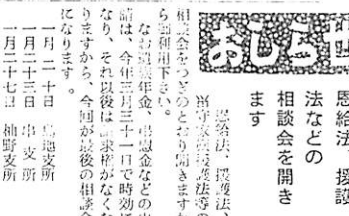 おしらせ
恩給法、援護
法などの
相談会を開き
ます
恩給法、援護法、
相談会をつぎのとおり開きますか
ら御利用下さい。
年金、弔慰金などの
請は、今年三月三十一日で時効に
なり、それ以後は請求権がなくな
りますから、今回が最後の相談会
になります。
一月二十日
一月二十三日 串支所
一月二十七日 柚野支所